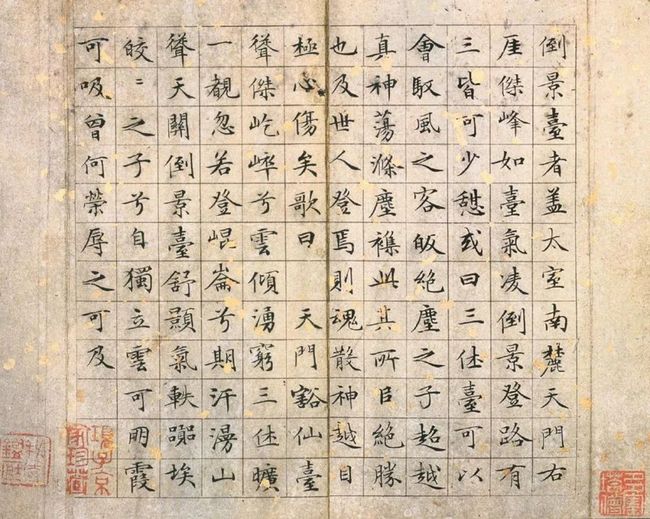 倒景臺者盖太室南麓天門右
厓傑峰如臺氣凌倒景登路有
三皆可少憇或曰三休臺可以
會馭風之客皈絶塵之子超越
真神蕩滌塵襟此其所臣絶勝
也及世人登焉則魂散神越目
極心傷矣歌曰　天門豁仙臺
聳傑屹崪兮雲傾湧窮三休曠
一覩忽若登崐崙兮期汗漫山
聳天關倒景臺舒顥氣軼嚻埃
皎〻之子兮自獨立雲可朋霞
可吸曾何榮辱之可及
項子京家珍藏